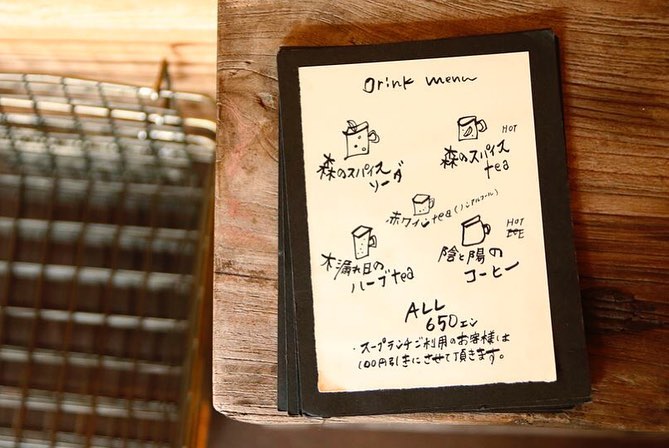 Drink menu
森のスパイス
ソーダ
HOT
森のスパイス
tea
赤ワインtea(ノンアルコール)
木漏れ日の
ハーブtea
HOT
ICE
陰と陽の
コーヒー
ALL
650エン
・スープランチご利用のお客様は
100円引きにさせて頂きます。